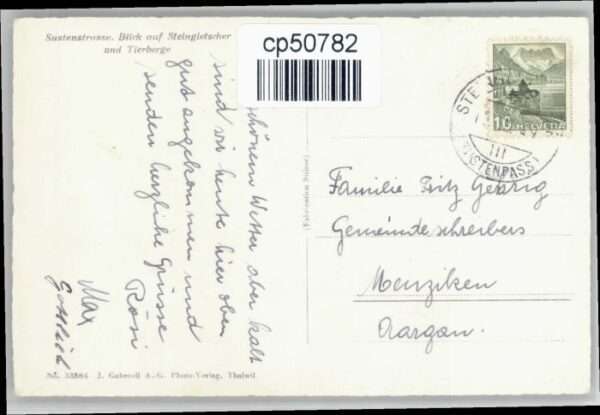 Sustenstrasse. Blick auf Steingletscher
und Tierberge
cp50782
10 HELVETIA
STE
(SUSTENPASS)
schönem Wetter aber kalt
sind wir heute hier oben
gut angekommen und
senden herzliche Grüsse
Rösi
Max
Gottlieb
Familie Fritz Gehrig
Gemeindeschreibers
Menziken
Aargau.
No. 13884 J. Gaberell A.-G. Photo-Verlag, Thalwil